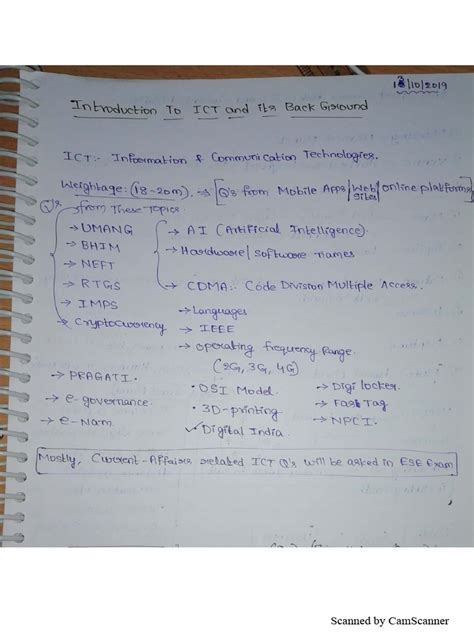 13/10/2019
Introduction To ICT and its Back Ground
ICT:- Information & Communication Technologies.
Weightage: (18-20m). → [Q's from Mobile Apps/Web Sites/online platforms]
Q's from These Topics:
→ UMANG → AI (Artificial Intelligence).
→ BHIM → Hardware/software names
→ NEFT
→ RTGS → CDMA:- Code Division Multiple Access.
→ IMPS → Languages
→ Cryptocurrency → IEEE
→ operating frequency Range.
(2G, 3G, 4G)
→ PRAGATI. • OSI Model. → Digi locker.
→ e-governance. • 3D-printing → FasTag
→ e-Nam. ✓ Digital India. → NPCI.
Mostly, Current-Affairs related ICT Q's will be asked in ESE Exam
Scanned by CamScanner